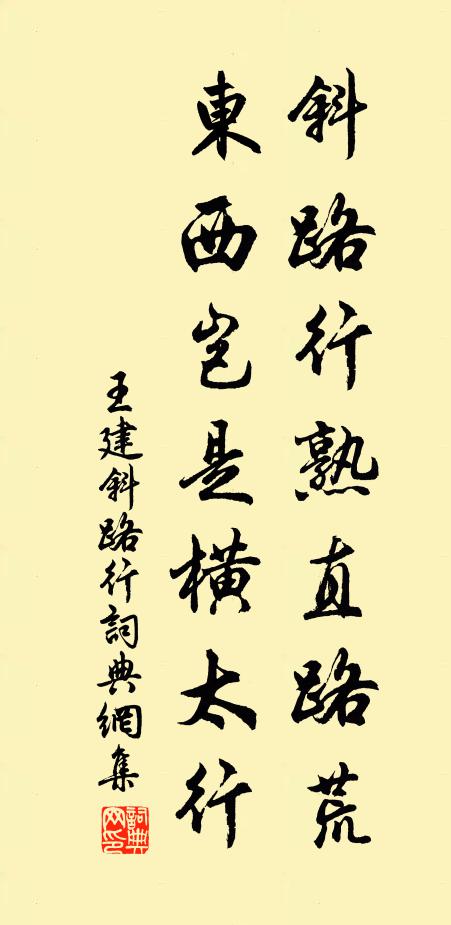 斜路行熟直路荒
東西豈是橫太行
王建斜路行詞典網集
詞典網印